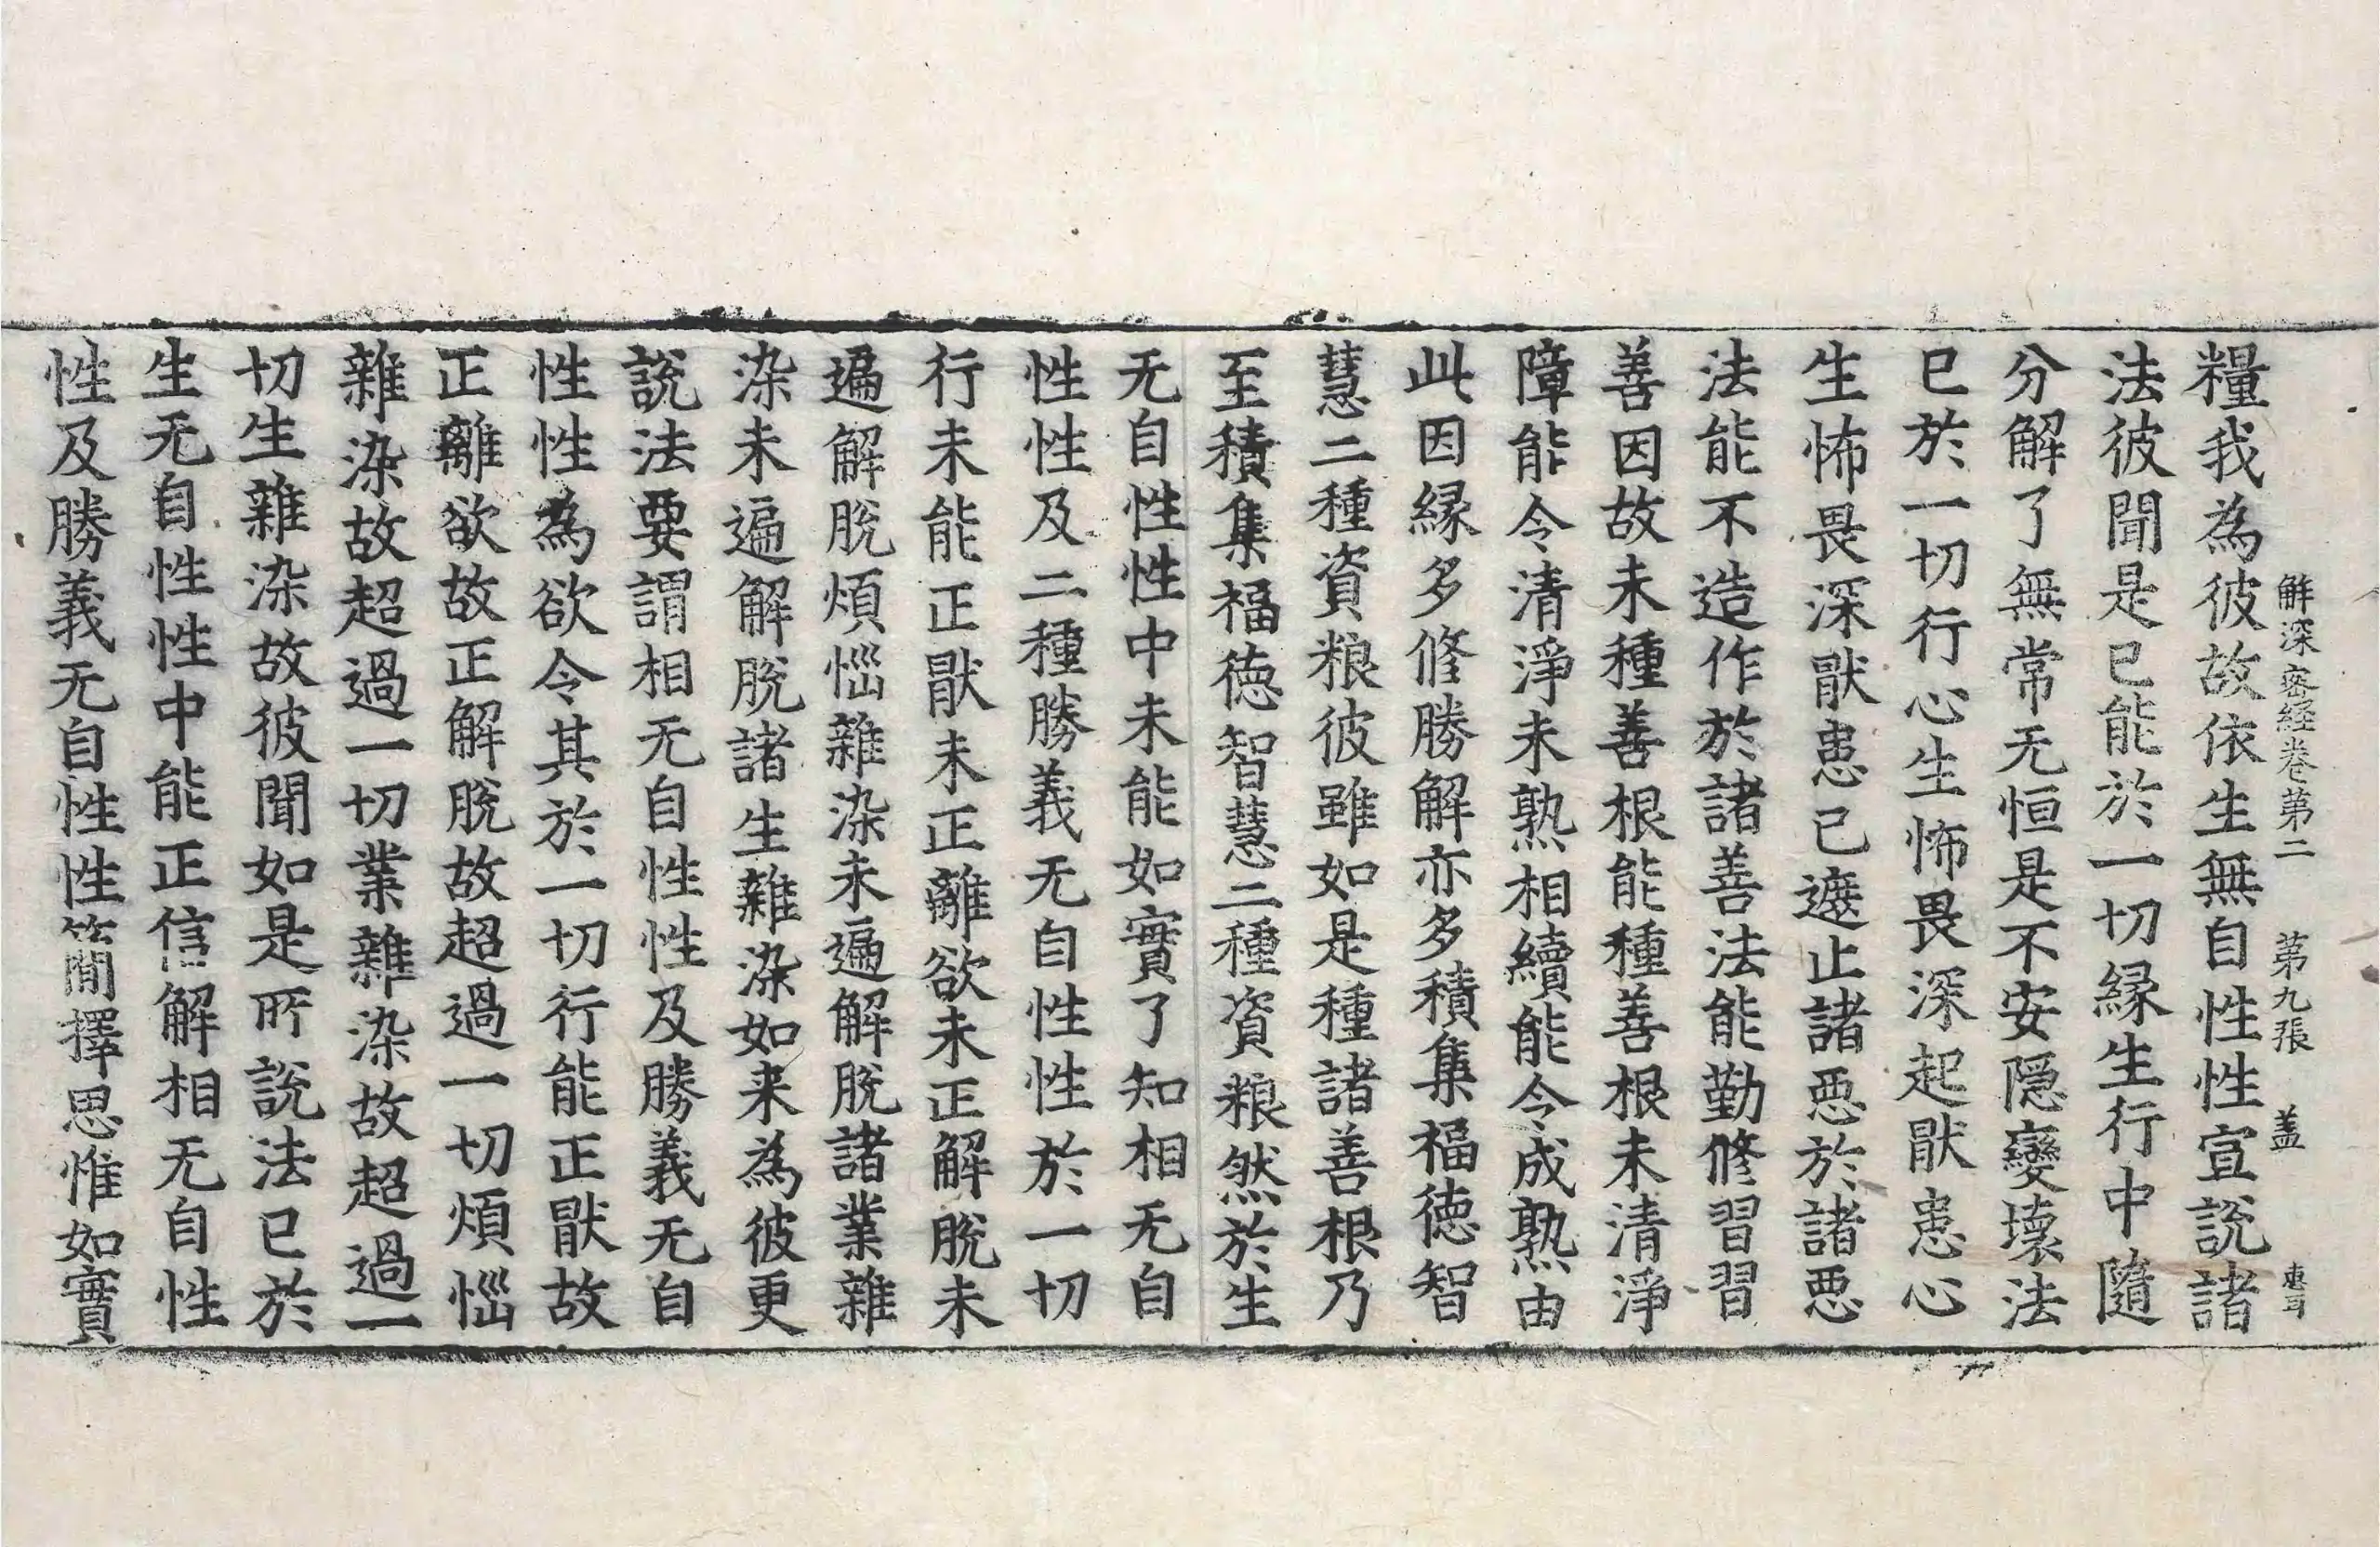 解深密経卷第二 第九張 盖
糧我為彼故依生無自性性宣說諸
法彼聞是已能於一切緣生行中隨
分解了無常无恒是不安隱變壞法
已於一切行心生怖畏深起猒患心
生怖畏深猒患已遮止諸惡於諸惡
法能不造作於諸善法能勤修習習
善因故未種善根能種善根未清淨
障能令清淨未熟相續能令成熟由
此因緣多修勝解亦多積集福德智
慧二種資粮彼雖如是種諸善根乃
至積集福德智慧二種資粮然於生
无自性性中未能如實了知相无自
性性及二種勝義无自性性於一切
行未能正猒未正離欲未正解脫未
遍解脫煩惱雜染未遍解脫諸業雜
染未遍解脫諸生雜染如来為彼更
說法要謂相无自性性及勝義无自
性性為欲令其於一切行能正猒故
正離欲故正解脫故超過一切煩惱
雜染故超過一切業雜染故超過一
切生雜染故彼聞如是所說法已於
生无自性性中能正信解相无自性
性及勝義无自性性簡擇思惟如實